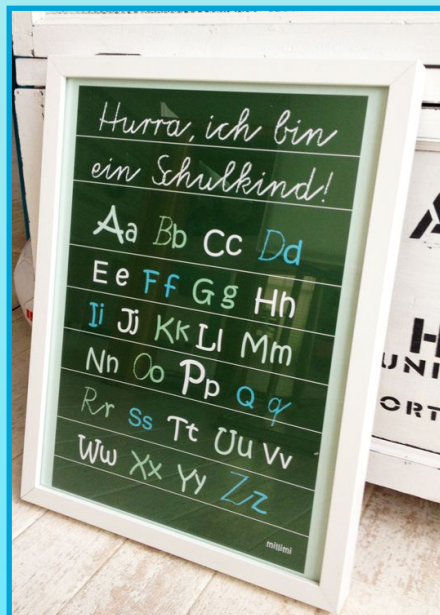 Hurra, ich bin
ein Schulkind!
Aa Bb Cc Dd
Ee Ff Gg Hh
Ii Jj Kk Ll Mm
Nn Oo Pp Qq
Rr Ss Tt Uu Vv
Ww Xx Yy Zz
milimi
A
H
UNI
ORT